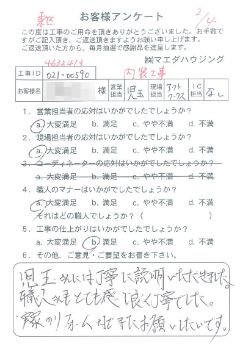 お客様アンケート
2/4
この度は工事のご用命を頂きありがとうございました。お手数で
すがご記入頂き、ご返送頂きますようお願い申し上げます。
ご返送頂いた方から、毎月抽選で感謝品を送呈します。
㈱マエダハウジング
工事ID 021-00590 内装工事
お客様名 様 営業担当 児玉 現場担当 IC担当 なし
1. 営業担当者の応対はいかがでしたでしょうか?
a. 大変満足 b. 満足 c. やや不満 d. 不満
2. 現場担当者の応対はいかがでしたでしょうか?
a. 大変満足 b. 満足 c. やや不満 d. 不満
3. コーディネーターの応対はいかがでしたでしょうか?
a. 大変満足 b. 満足 c. やや不満 d. 不満
4. 職人のマナーはいかがでしたでしょうか?
a. 大変満足 b. 満足 c. やや不満 d. 不満
それはどの職人でしょうか?(
5. 工事の仕上がりはいかがでしたでしょうか?
a. 大変満足 b. 満足 c. やや不満 d. 不満
6. その他、ご意見・ご要望をお書き下さい。
児玉さんには丁寧に説明いただきました。
職人さんもとても感じ良く丁寧でした。
リフォームもぜひお願いしたいです。